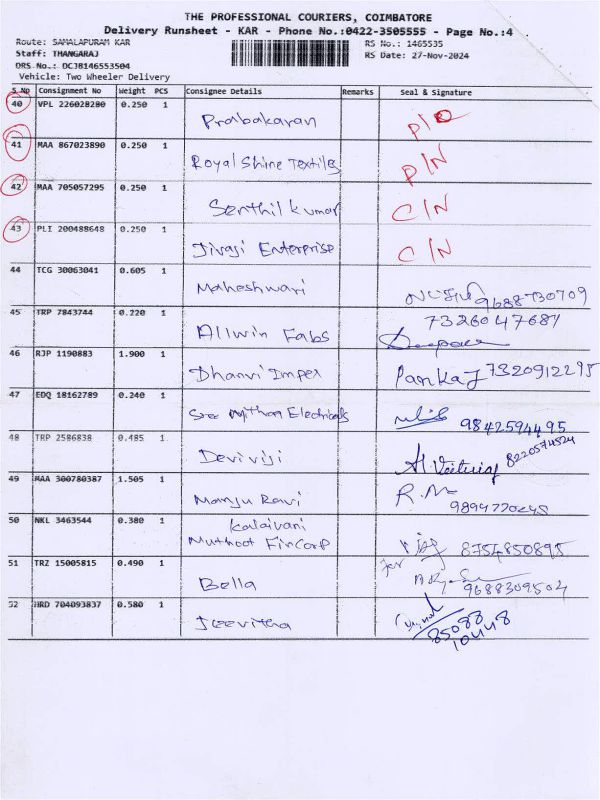 THE PROFESSIONAL COURIERS, COIMBATORE
Delivery Runsheet - KAR - Phone No.:0422-3505555 - Page No.:4
Route: SAMALAPURAM KAR RS No.: 1465535
Staff: THANGARAJ RS Date: 27-Nov-2024
DRS No.: DCJB146553504
Vehicle: Two Wheeler Delivery
S No Consignment No Weight PCS Consignee Details Remarks Seal & Signature
40 VPL 226028280 0.250 1 Prabakaran
41 MAA 867023890 0.250 1 Royal Shine Textiles P/N
42 MAA 705057295 0.250 1 Senthil Kumar C/N
43 PLI 200488648 0.250 1 Jivaji Enterprise C/N
44 TCG 30063041 0.605 1 Maheshwari 9688730709
45 TRP 7843744 0.220 1 Allwin Fabs 7326047687
46 RJP 1190883 1.900 1 Dhanvi Impex Pankaj 7320912295
47 EDQ 18162789 0.240 1 Sree Mithra Electricals 9842594495
48 TRP 2586838 0.485 1 Devi viji 8220574524
49 MAA 300780387 1.505 1 Manju Ravi R.M 9894770248
50 NKL 3463544 0.380 1 Kalaivani Muthoot FinCorp 8754850895
51 TRZ 15005815 0.490 1 Bella for 9688309504
52 HRD 704093837 0.580 1 Jeevitha 85088 10448